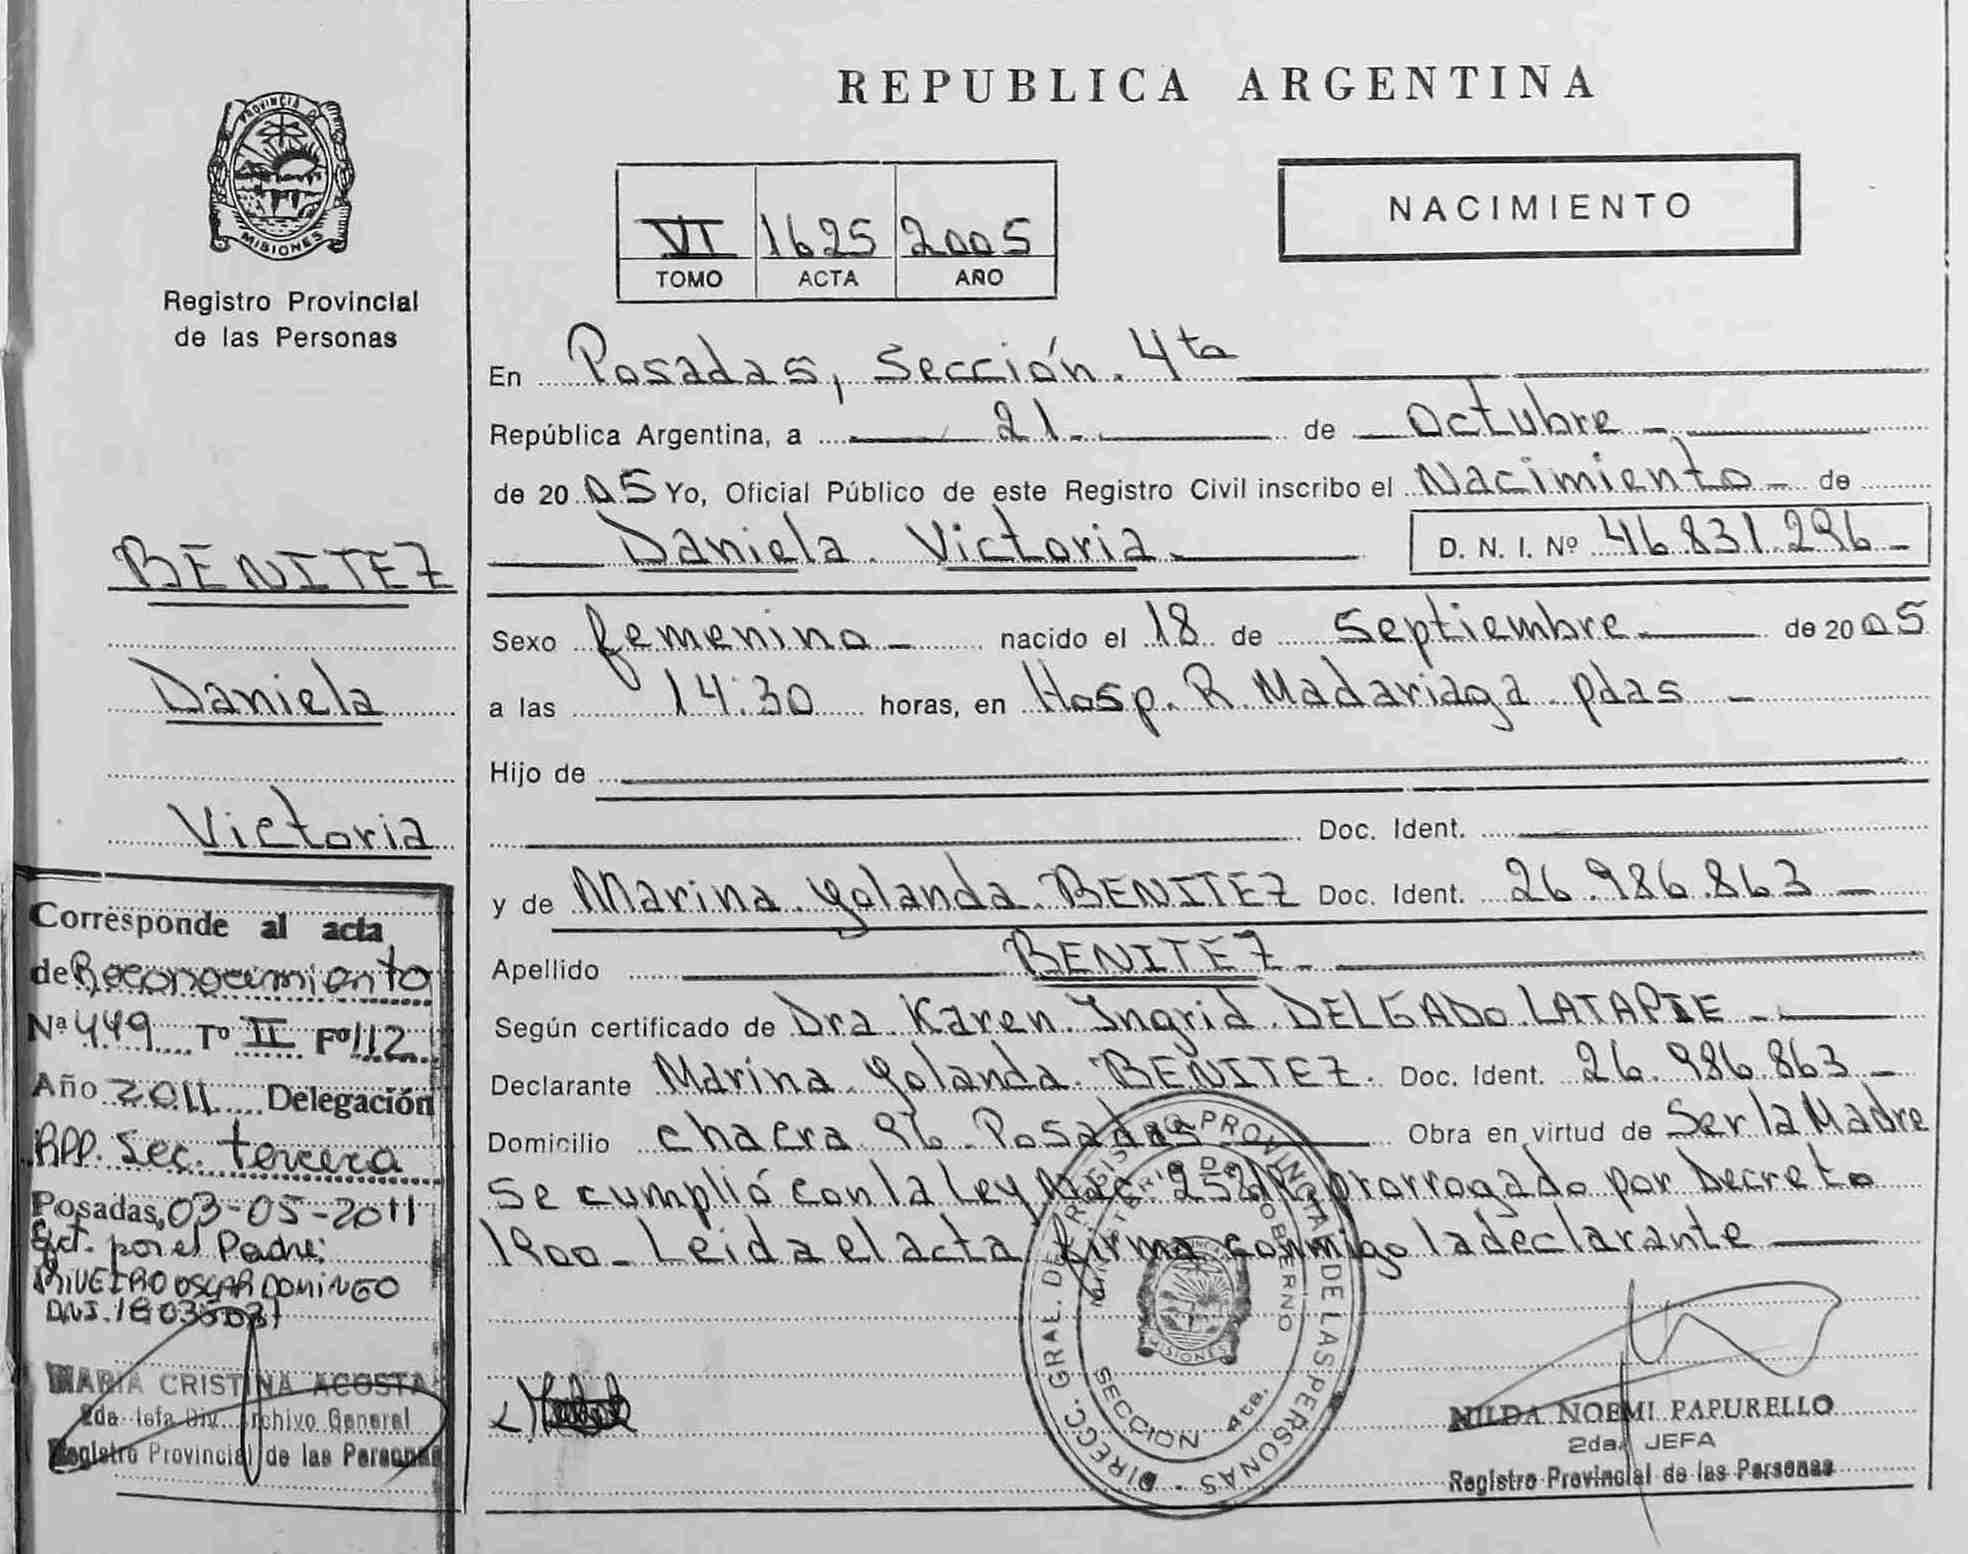 PROVINCIA DE
MISIONES
Registro Provincial
de las Personas
BENITEZ
Daniela
Victoria
Corresponde al acta
de Reconocimiento
Nª 449 Tº II Fº 112
Año 2011 Delegación
RPP. Sec. tercera
Posadas, 03-05-2011
Ect. por el Padre:
RIVEIRO OSCAR DOMINGO
DNI.
MARIA CRISTINA ACOSTA
2da Jefa Div. Archivo General
Registro Provincial de las Personas
REPUBLICA ARGENTINA
NACIMIENTO
VI 1625 2005
TOMO ACTA AÑO
En Posadas, Sección 4ta
República Argentina, a 21 de Octubre
de 2005 Yo, Oficial Público de este Registro Civil inscribo el Nacimiento de
Daniela Victoria D. N. I. Nº 46.831.296
Sexo femenino nacido el 18 de Septiembre de 2005
a las 14:30 horas, en Hosp. R. Madariaga pdas
Hijo de
Doc. Ident.
y de Marina Yolanda BENITEZ Doc. Ident. 26.986.863
Apellido BENITEZ
Según certificado de Dra Karen Ingrid DELGADO LATAPIE
Declarante Marina Yolanda BENITEZ. Doc. Ident. 26.986.863
Domicilio chacra 96 Posadas Obra en virtud de Ser la Madre
Se cumplió con la Ley Nac. prorrogado por Decreto
1900 - Leida el acta firma conmigo la declarante
DIRECC. GRAL. DE REGISTRO PROVINCIAL DE LAS PERSONAS
MINISTERIO DE GOBIERNO
SECCION 4ta.
MISIONES
NILDA NOEMI PAPURELLO
2da. JEFA
Registro Provincial de las Personas